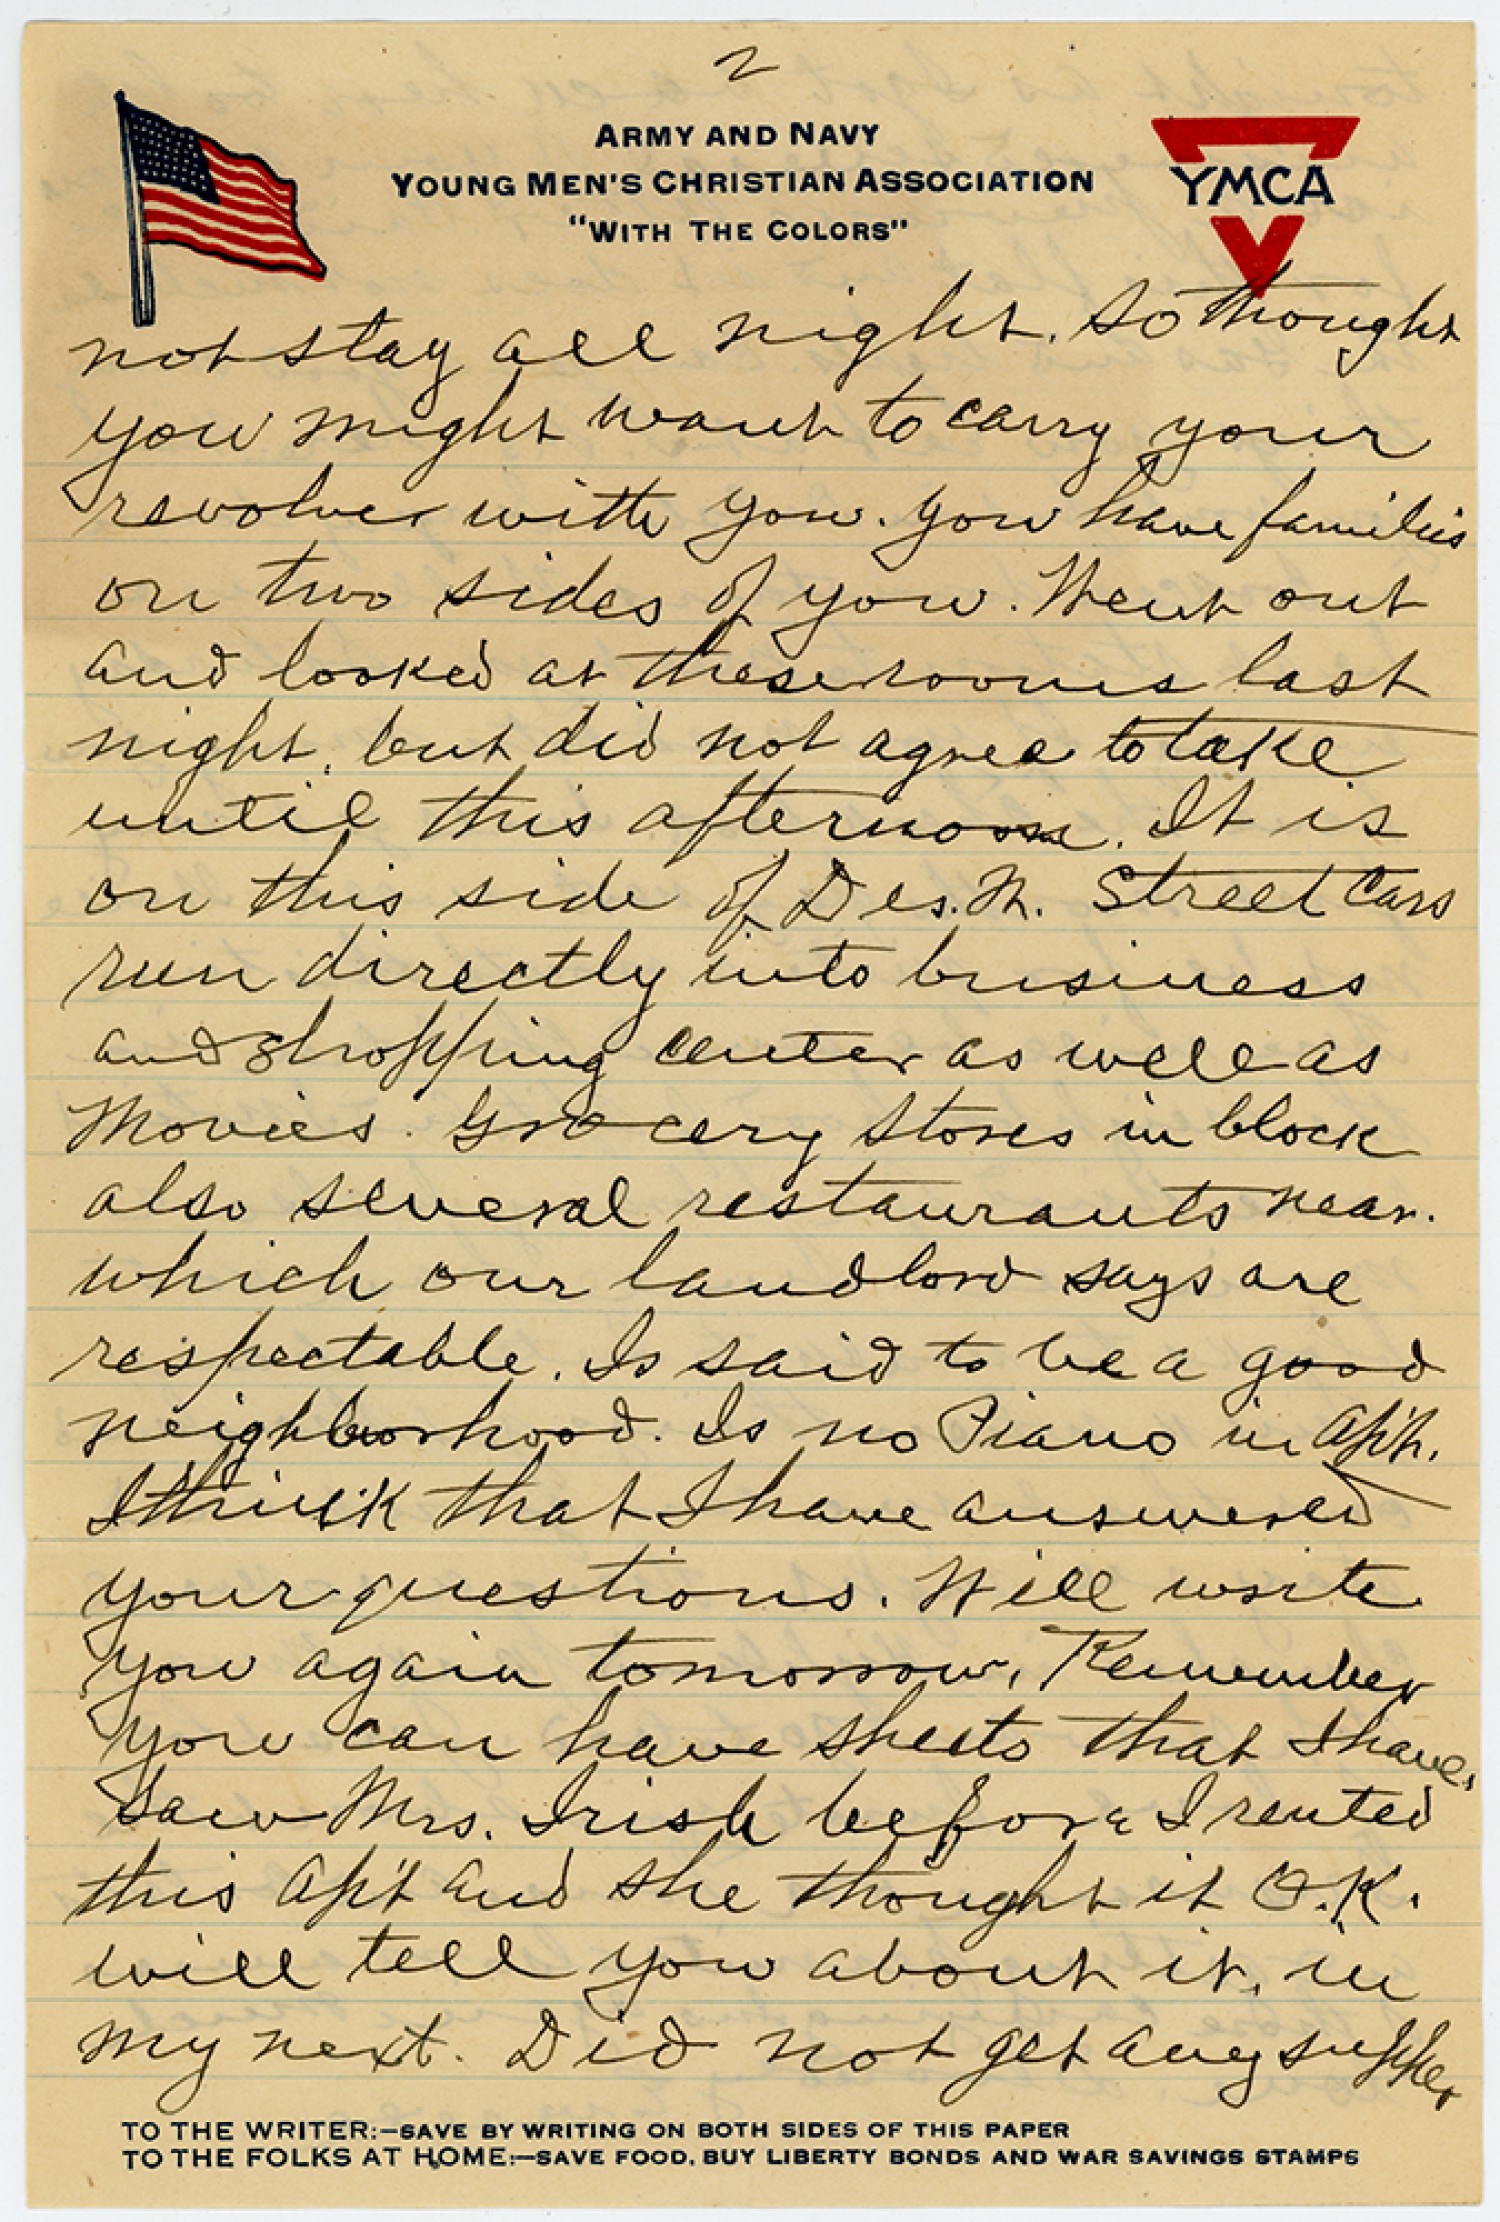 2
ARMY AND NAVY
YOUNG MEN'S CHRISTIAN ASSOCIATION
"WITH THE COLORS"
YMCA
not stay all night. So thought
you might want to carry your
revolver with you. You have families
on two sides of you. Went out
and looked at these rooms last
night, but did not agree to take
until this afternoon. It is
on this side of Des. M. Street Cars
run directly into business
and shopping center as well as
Movies. Grocery stores in block
also several restaurants near.
which our landlord says are
respectable. Is said to be a good
neighborhood. Is no Piano in Ap't.
I think that I have answered
your questions. Will write
you again tomorrow. Remember
you can have sheets that I have.
Saw Mrs. Irish before I rented
this Ap't and she thought it O.K.
will tell you about it, in
my next. Did not get any supper
TO THE WRITER:—SAVE BY WRITING ON BOTH SIDES OF THIS PAPER
TO THE FOLKS AT HOME:—SAVE FOOD, BUY LIBERTY BONDS AND WAR SAVINGS STAMPS